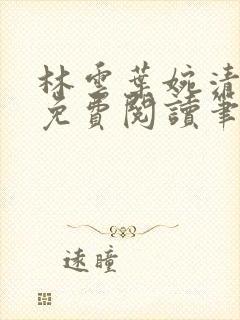 林雲葉婉清
免費閱讀筆
遠瞳